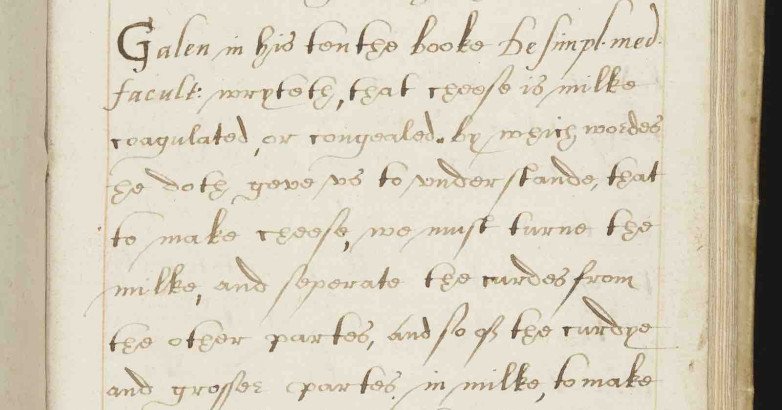 Galen in his tenthe booke De simpl. med.
facult: wryteth, that cheese is milke
coagulated, or congealed. by which wordes
he doth geve vs to vnderstande, that
to make cheese, we must turne the
milke, and seperate the curdes from
the other partes, and so of the curdye
and grosser partes in milke, to make